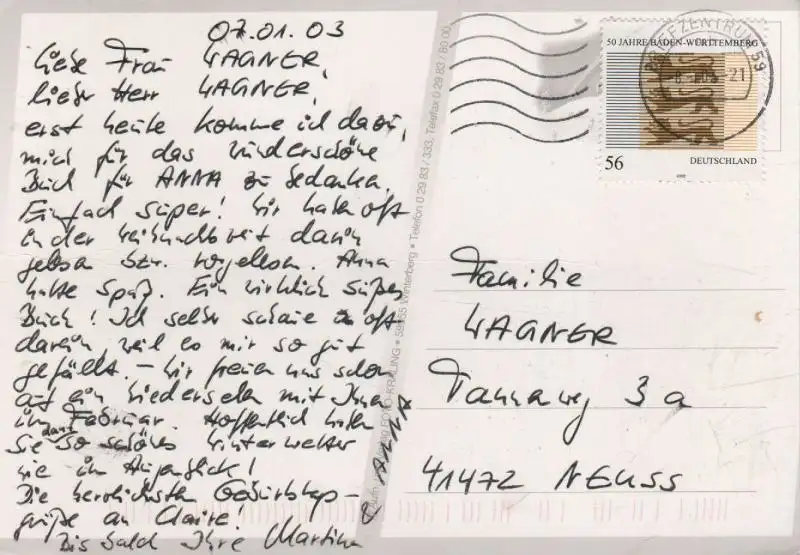 07.01.03
Liebe Frau WAGNER,
lieber Herr WAGNER,
erst heute komme ich dazu,
mich für das wunderschöne
Buch für ANNA zu bedanken.
Einfach super! Wir haben oft
in der Weihnachtszeit darin
gelesen bzw. vorgelesen. Anna
hatte Spaß. Ein wirklich süßes
Buch! Ich selber schaue oft
darin, weil es mir so gut
gefällt. – Wir freuen uns schon
auf ein Wiedersehen mit Ihnen
im Februar. Hoffentlich haben
Sie dann so schönes Winterwetter
wie im Augenblick!
Die herzlichsten Geburtstags-
grüße an Claire!
Bis bald Ihre Martina
& ANNA
FOTO-KRÄLING • 59955 Winterberg • Telefon 0 29 83 / 333, Telefax 0 29 83 / 80 00
50 JAHRE BADEN-WÜRTTEMBERG
56 DEUTSCHLAND
BRIEFZENTRUM 59
21
Familie
WAGNER
Tannenweg 3 a
41472 NEUSS